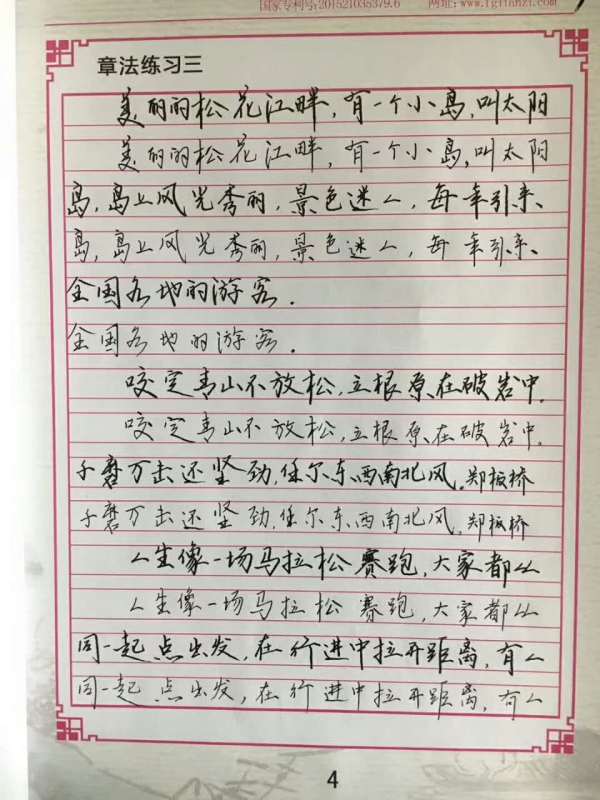 国家专利号:201521035379.6 网址:www.fgfinhzi.com
章法练习三
美丽的松花江畔,有一个小岛,叫太阳
美丽的松花江畔,有一个小岛,叫太阳
岛,岛上风光秀丽,景色迷人,每年引来
岛,岛上风光秀丽,景色迷人,每年引来
全国各地的游客.
全国各地的游客.
咬定青山不放松,立根原在破岩中.
咬定青山不放松,立根原在破岩中.
千磨万击还坚劲,任尔东西南北风.郑板桥
千磨万击还坚劲,任尔东西南北风.郑板桥
人生像一场马拉松赛跑,大家都从
人生像一场马拉松赛跑,大家都从
同一起点出发,在行进中拉开距离,有人
同一起点出发,在行进中拉开距离,有人
4